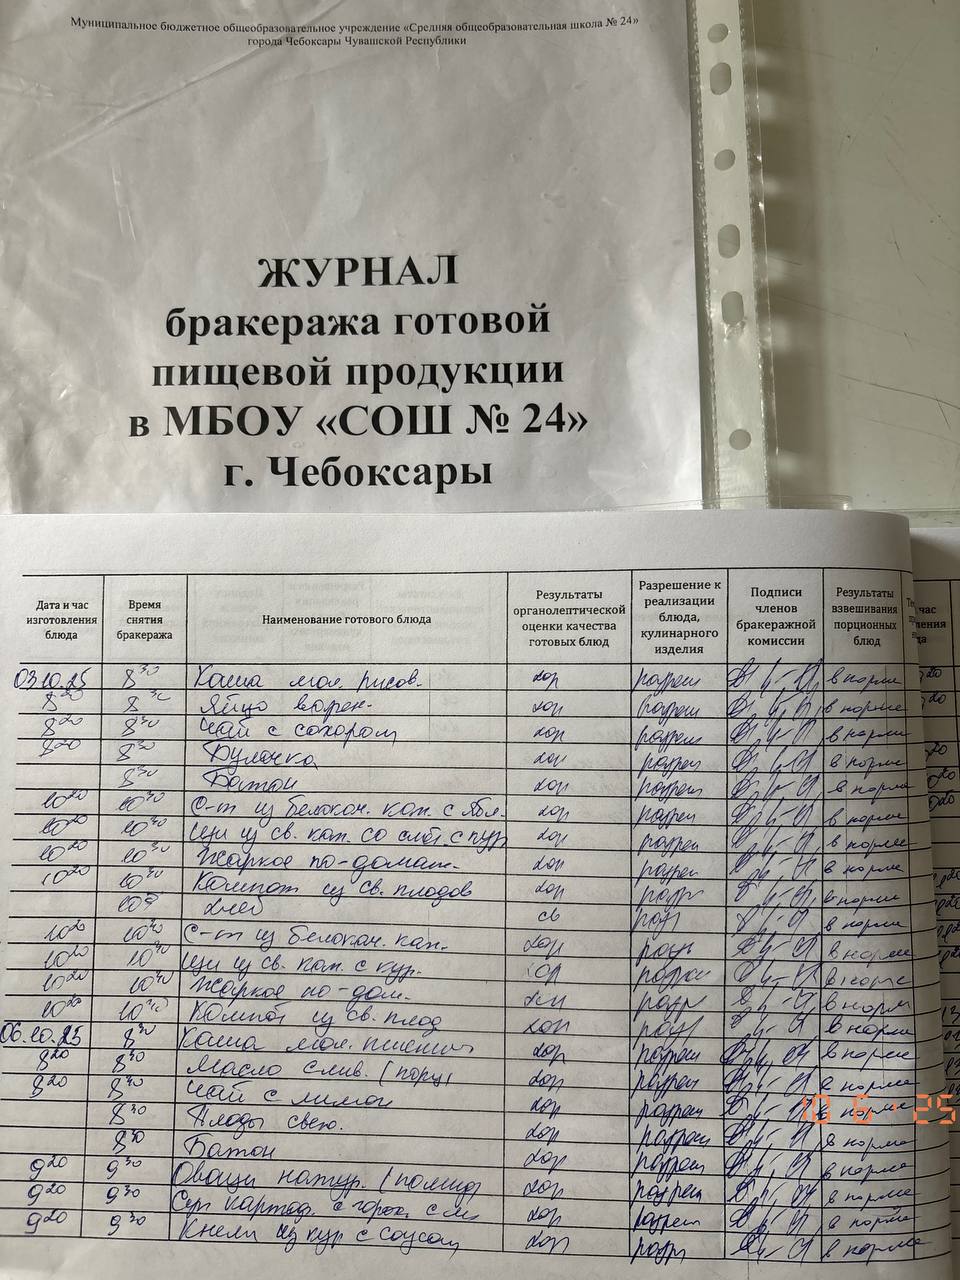 Муниципальное бюджетное общеобразовательное учреждение «Средняя общеобразовательная школа № 24»
города Чебоксары Чувашской Республики
ЖУРНАЛ
бракеража готовой
пищевой продукции
в МБОУ «СОШ № 24»
г. Чебоксары
Дата и час изготовления блюда Время снятия бракеража Наименование готового блюда Результаты органолептической оценки качества готовых блюд Разрешение к реализации блюда, кулинарного изделия Подписи членов бракеражной комиссии Результаты взвешивания порционных блюд
03.10.25 8 30 Каша мол. рисов. хор разреш в норме
8 20 8 30 Яйцо варен. хор разреш в норме
8 20 8 30 Чай с сахаром хор разреш в норме
8 20 8 30 Булочка хор разреш в норме
8 30 Батон хор разреш в норме
10 20 10 30 С-т из белокоч. кап. с ябл. хор разреш в норме
10 20 10 30 Щи из св. кап. со смет. с кур. хор разреш в норме
10 20 10 30 Жаркое по-домаш. хор разреш в норме
10 20 10 30 Компот из св. плодов хор разр в норме
10 30 хлеб разр в норме
10 20 10 30 С-т из белокоч. кап. хор разр в норме
10 20 10 30 Щи из св. кап. с кур. хор разреш в норме
10 20 10 30 Жаркое по-дом. хор разр в норм
10 20 10 30 Компот из св. плод хор разр в норме
06.10.25 8 30 Каша мол. пшенич хор разреш в норме
8 20 8 30 Масло слив. (порц) хор разреш в норме
8 20 8 30 Чай с лимон хор разреш в норме
8 30 Плоды свеж. хор разреш в норме
8 30 Батон хор разреш в норме
9 20 9 30 Овощи натур. (помид) хор разреш в норме
9 20 9 30 Суп картоф. с горох. хор разреш в норме
9 20 9 30 Кнели из кур с соусом хор разр в норме
10 6 '25